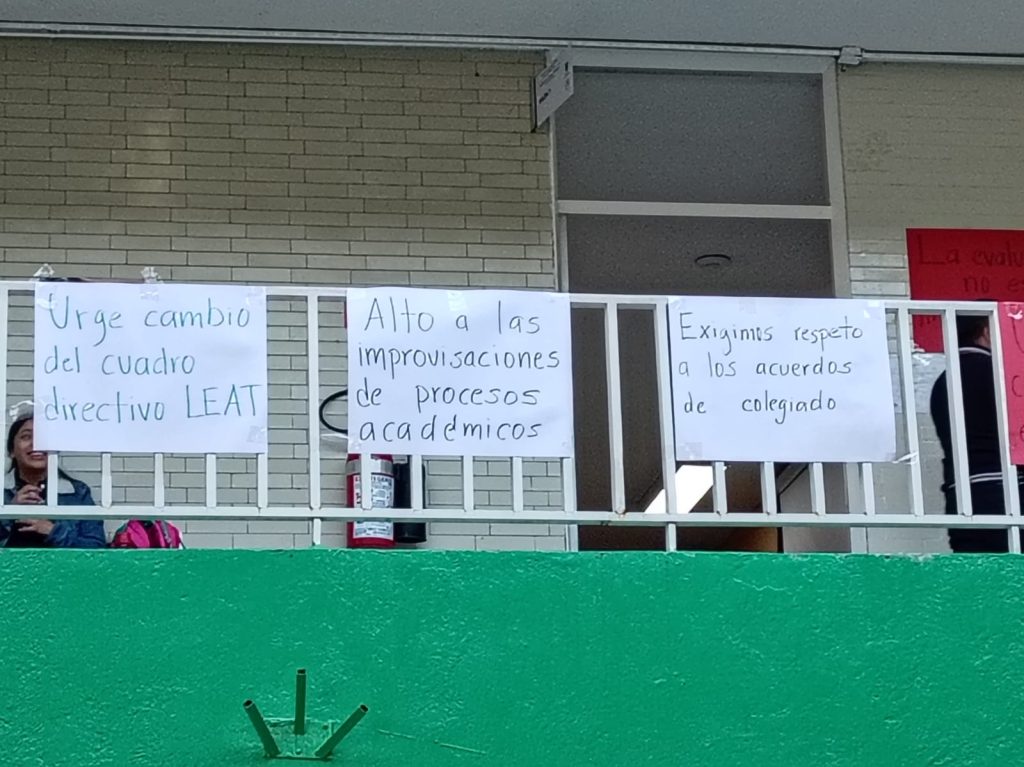 Urge cambio
del cuadro
directivo LEAT
Alto a las
improvisaciones
de procesos
académicos
Exigimos respeto
a los acuerdos
de colegiado
La
no